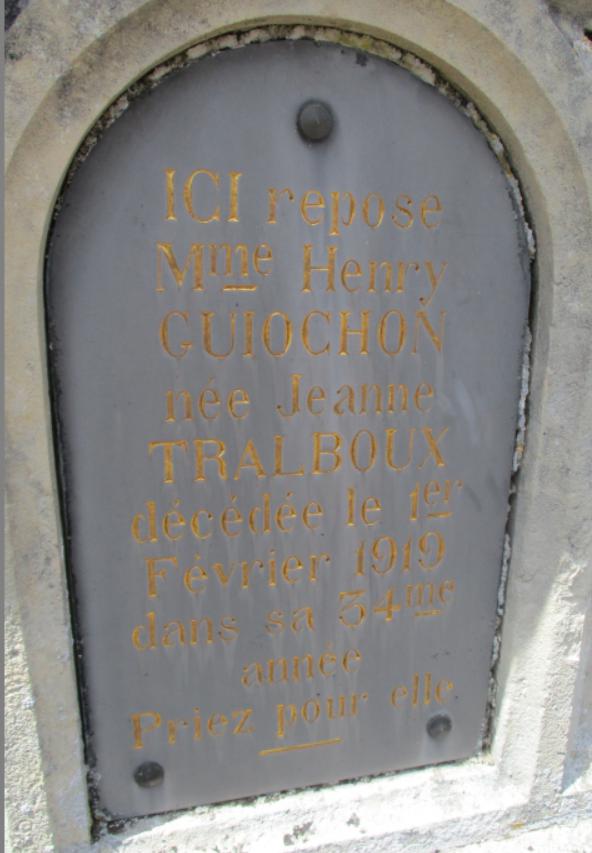 ICI repose
Mme Henry
GUIOCHON
née Jeanne
TRALBOUX
décédée le 1er
Février 1919
dans sa 34me
année
Priez pour elle